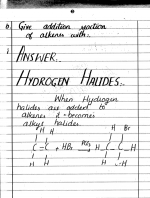 Give addition reaction
of alkenes with:.
ANSWER:.
HYDROGEN HALIDES:.
When Hydrogen
halides are added to
alkenes it becomes
alkyl halides.
H H H Br
C=C + HBr C C H
H H H H